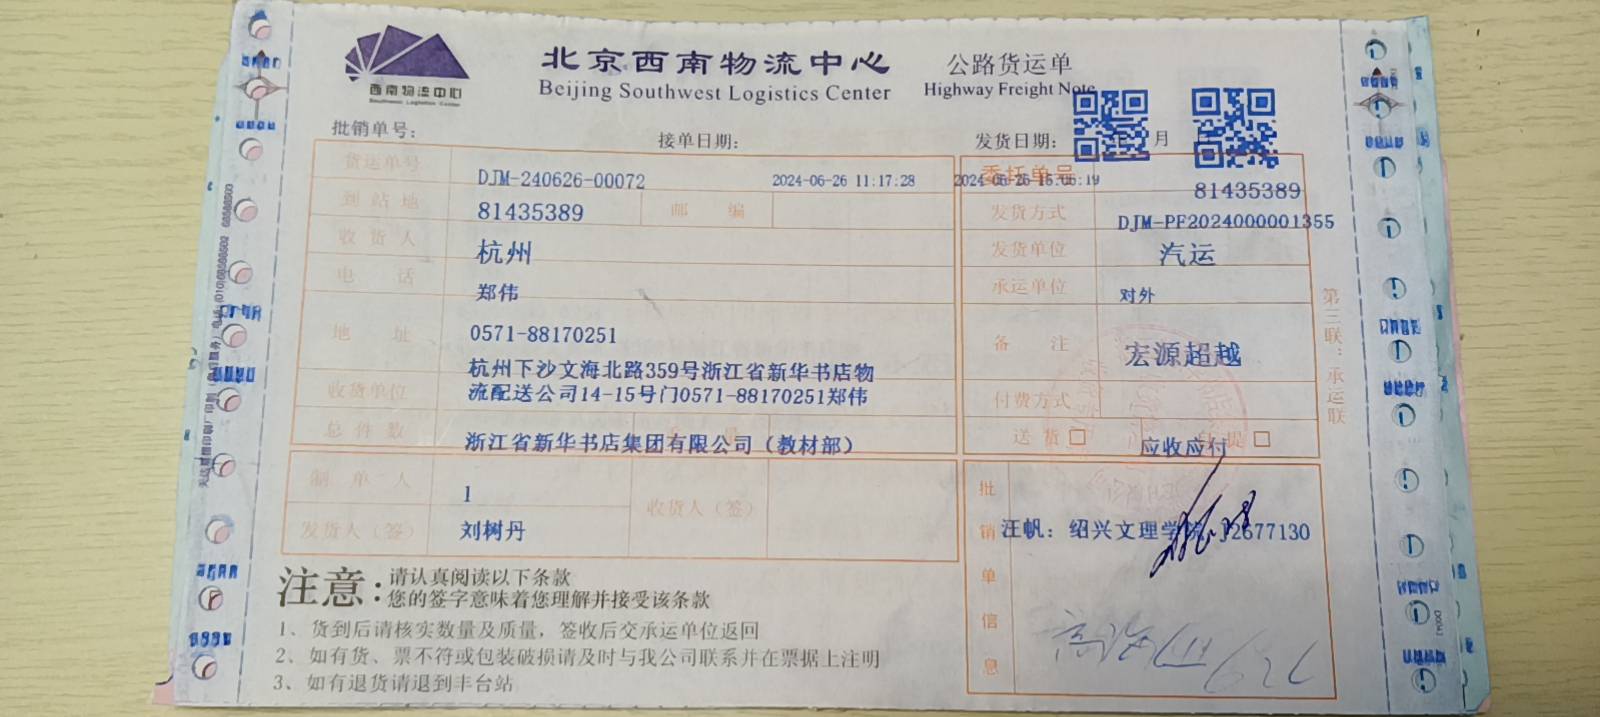 西南物流中心
Southwest Logistics Center
北京西南物流中心
Beijing Southwest Logistics Center
公路货运单
Highway Freight Note
批销单号:
接单日期:
发货日期:
月
货运单号
DJM-240626-00072
2024-06-26 11:17:28
2024-06-26 15:06:19
委托单号
81435389
到站地
81435389
邮 编
发货方式
DJM-PF2024000001355
收货人
杭州
发货单位
汽运
电 话
郑伟
承运单位
对外
地 址
0571-88170251
杭州下沙文海北路359号浙江省新华书店物
流配送公司14-15号门0571-88170251郑伟
备 注
宏源超越
收货单位
浙江省新华书店集团有限公司（教材部）
付费方式
应收应付
总件数
送货□
提□
制单人
1
收货人（签）
发货人（签）
刘树丹
批销单信息
汪帆: 绍兴文理学院 J2677130
第三联：承运联
注意:
请认真阅读以下条款
您的签字意味着您理解并接受该条款
1、货到后请核实数量及质量，签收后交承运单位返回
2、如有货、票不符或包装破损请及时与我公司联系并在票据上注明
3、如有退货请退到丰台站